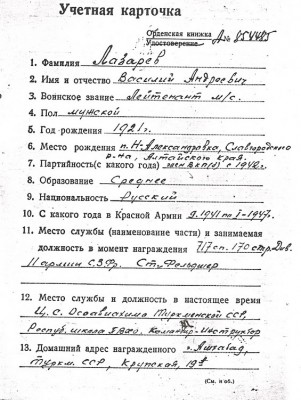 Учетная карточка
Орденская книжка А№ 854485
Удостоверение
1. Фамилия Лазарев
2. Имя и отчество Василий Андреевич
3. Воинское звание Лейтенант м/с.
4. Пол мужской
5. Год рождения 1921г.
6. Место рождения п. Н-Александровка, Славгородского
р-на, Алтайского края.
7. Партийность(с какого года) член ВКП(б) с 1942г.
8. Образование Среднее
9. Национальность Русский
10. С какого года в Красной Армии 9.1941 по I-1947г.
11. Место службы (наименование части) и занимаемая
должность в момент награждения 717 сп. 170 стр. Див.
11 армии С.З.Фр. Ст. Фельдшер
12. Место службы и должность в настоящее время
Ц. С. Осоавиахима Туркменской ССР,
Республ. школа Командир-Инструктор
13. Домашний адрес награжденного г. Ашхабад,
Туркм. ССР, Крупской, 19
(См. н об.)